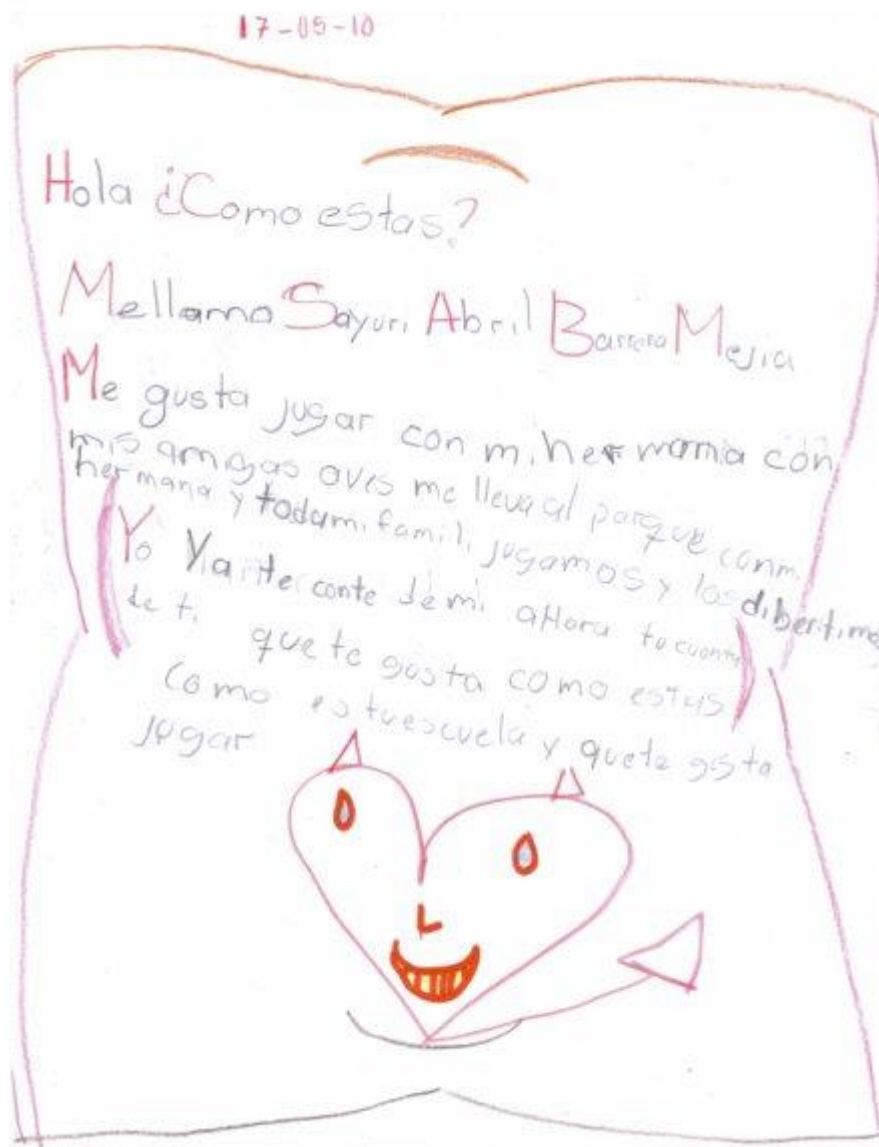 17-05-10
Hola ¿Como estas?
Mellamo Sayuri Abril Barrera Mejia
Me gusta jugar con mi hermana con
mis amigas aves me lleva al parque conmi
hermana y todami famili jugamos y los dibertimos
Yo Ya te conte demi aHora tu cuenta
de ti que te gusta como estas
Como es tuescuela y quete gista
jugar